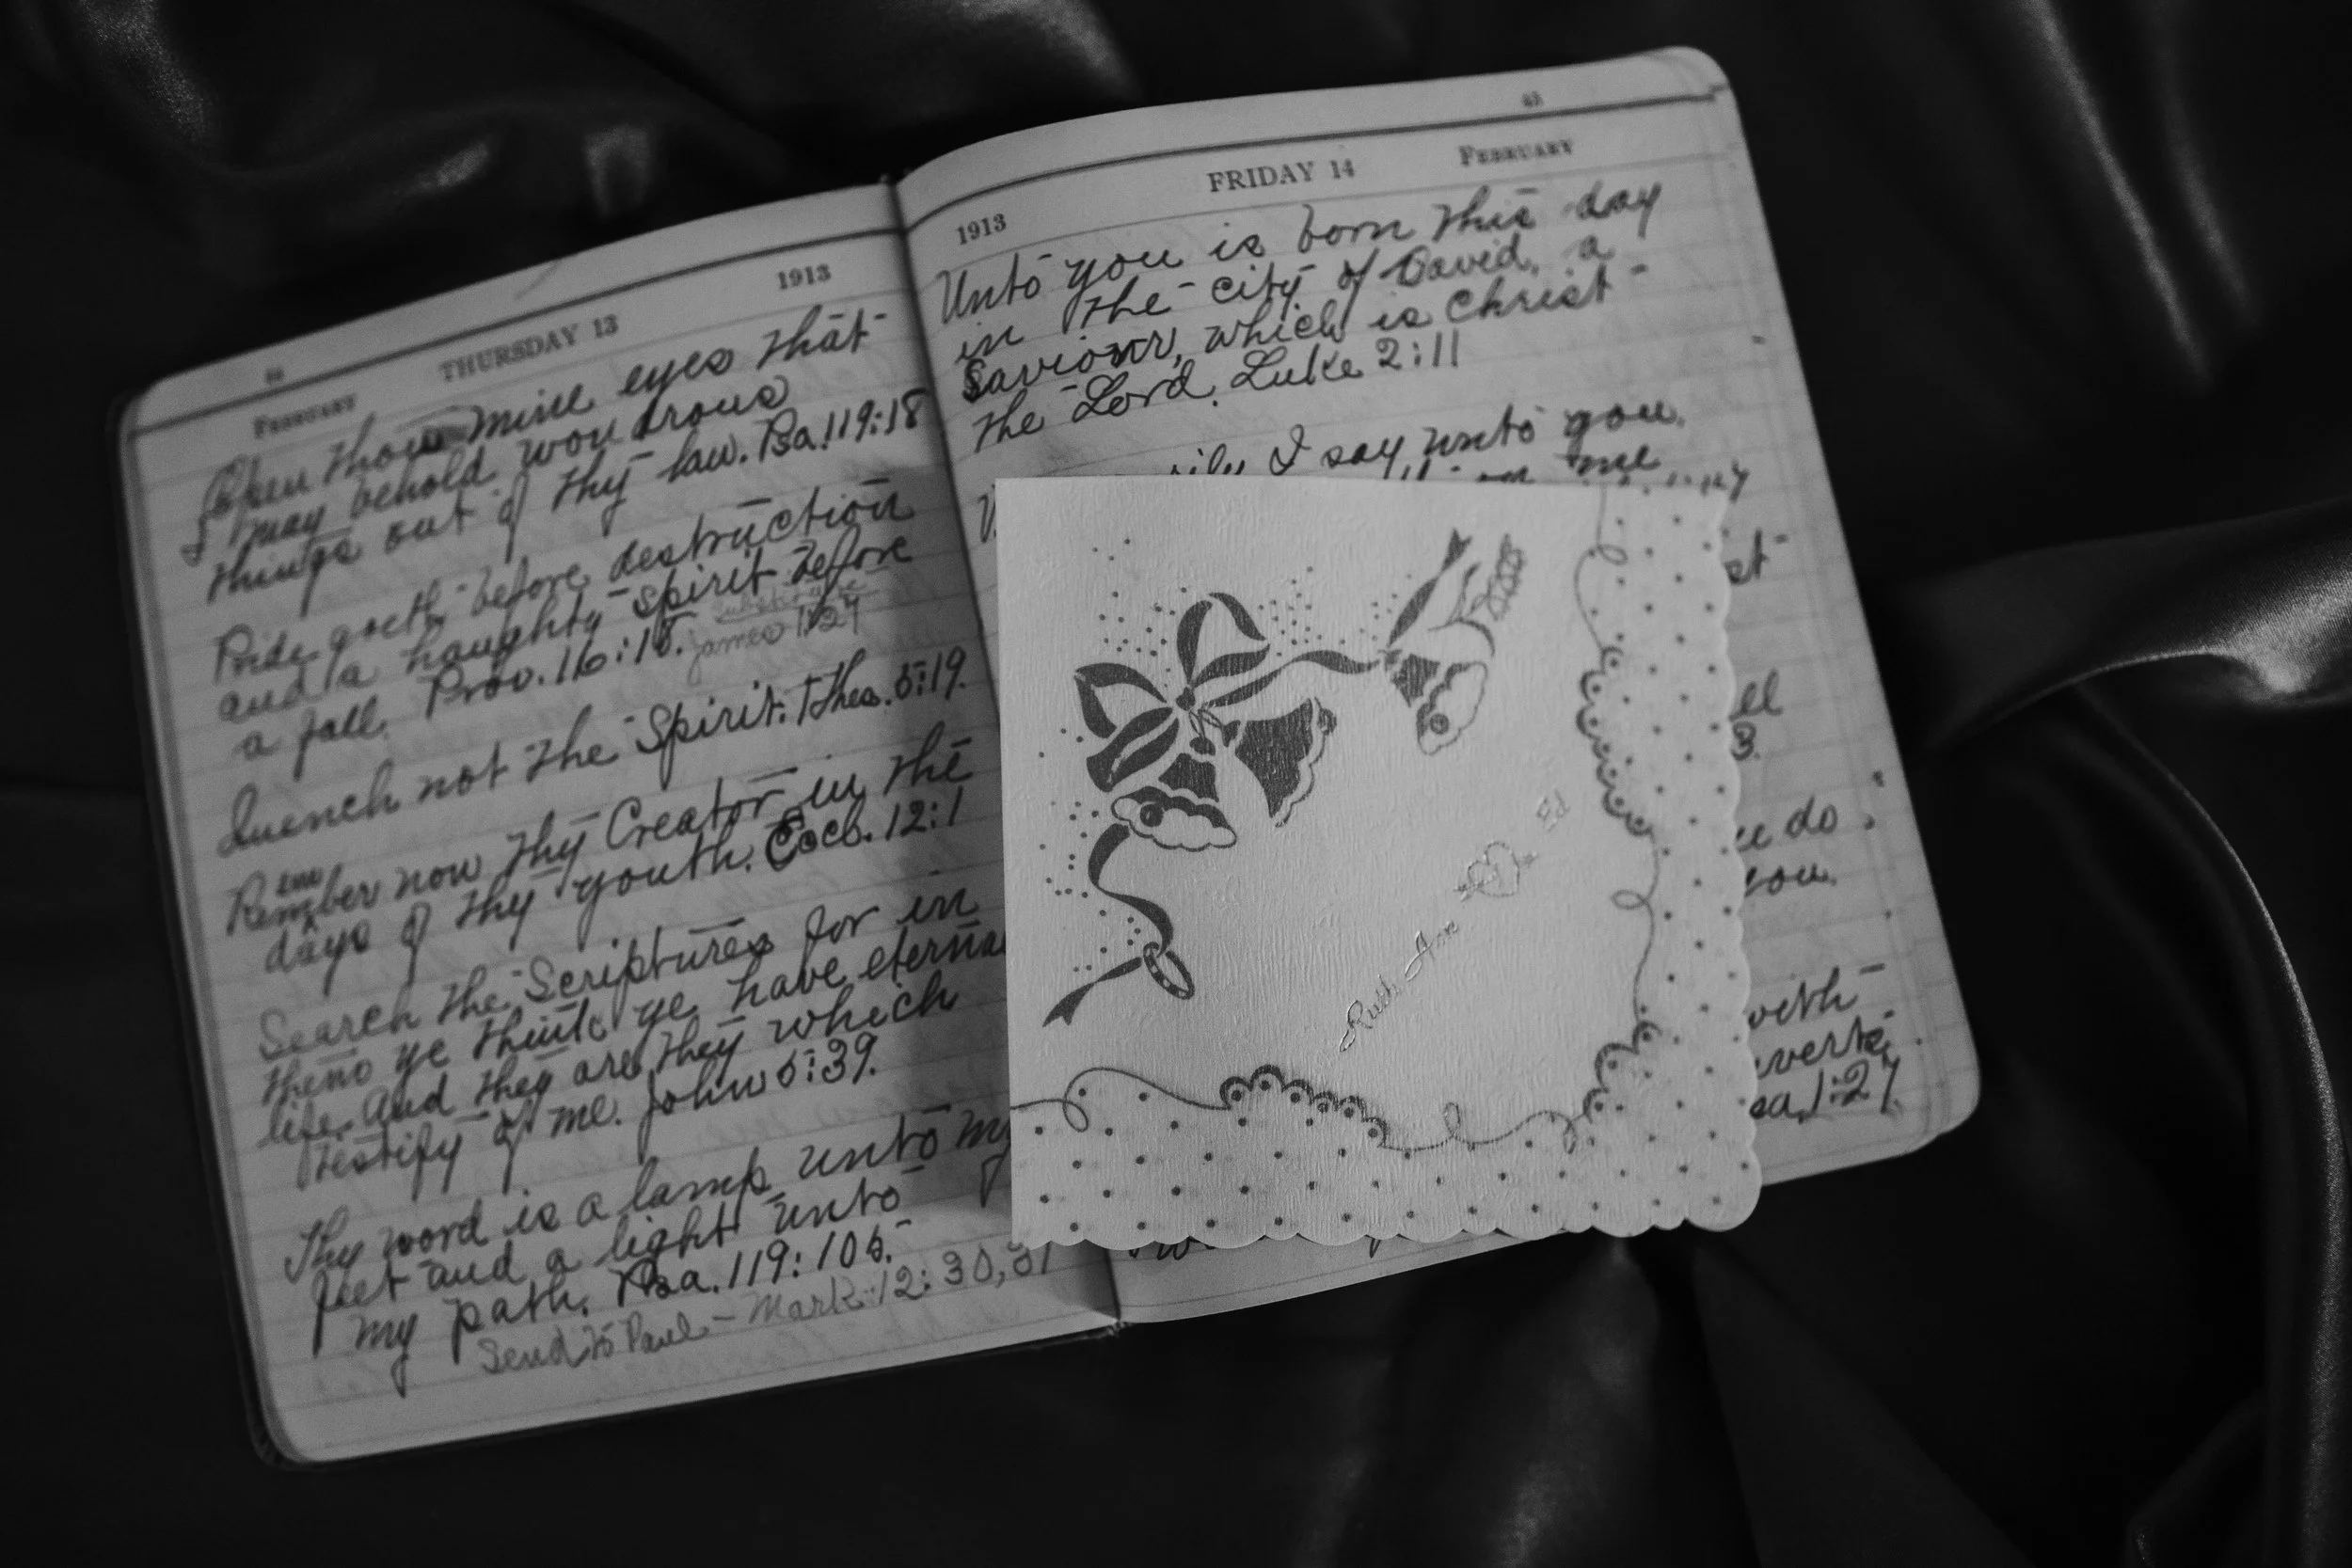 44
FEBRUARY THURSDAY 13 1913
Open thou mine eyes that
I may behold wondrous
things out of thy law. Psa. 119:18
Pride goeth before destruction
and a haughty spirit before
a fall. Prov. 16:18. James 1:27
Quench not the Spirit. 1 Thes. 5:19.
Remember now thy Creator in the
days of thy youth. Eccl. 12:1
Search the Scriptures for in
them ye think ye have eternal
life. And they are they which
testify of me. John 5:39.
Thy word is a lamp unto my
feet and a light unto
my path. Psa. 119:105.
Send to Paul - Mark 12:30,31
45
1913 FRIDAY 14 FEBRUARY
Unto you is born this day
in the city of David, a
Saviour, which is Christ
the Lord. Luke 2:11
I say unto you.
me
st
ll
3.
do
you.
with
1:27
Ruth Ann
Ed